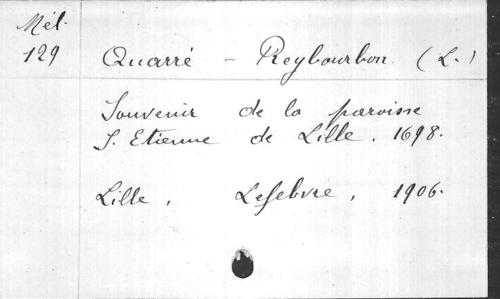 Mél.
129
Quarré - Reybourbon (L.)
Souvenir de la paroisse
S. Etienne de Lille. 1698.
Lille, Lefebvre, 1906.